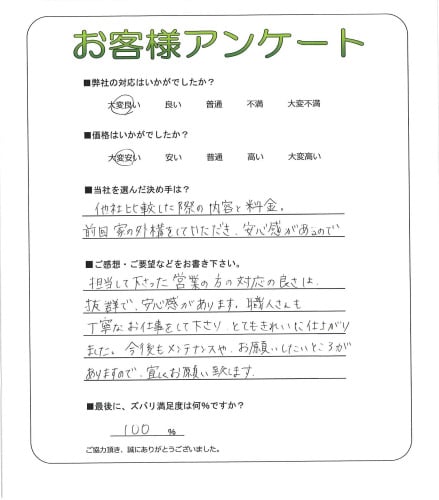 お客様アンケート
■弊社の対応はいかがでしたか？
大変良い 良い 普通 不満 大変不満
■価格はいかがでしたか？
大変安い 安い 普通 高い 大変高い
■当社を選んだ決め手は？
他社比較した際の内容と料金。
前回家の外構をしていただき、安心感があるので
■ご感想・ご要望などをお書き下さい。
担当して下さった営業の方の対応の良さは、
抜群で、安心感があります。職人さんも
丁寧なお仕事をして下さり、とてもきれいに仕上がり
ました。今後もメンテナンスや、お願いしたいところが
ありますので、宜しくお願い致します。
■最後に、ズバリ満足度は何％ですか？
100 ％
ご協力頂き、誠にありがとうございました。